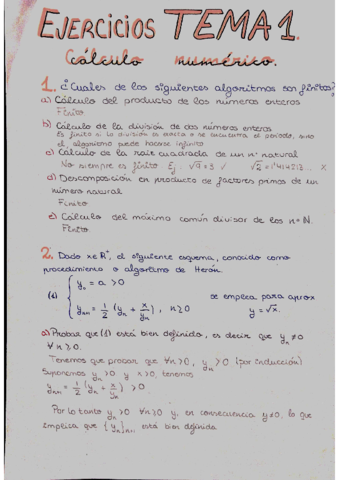 EJERCICIOS TEMA 1.
Cálculo numérico.
1. ¿Cuales de los siguientes algoritmos son finitos?
a) Cálculo del producto de los números enteros
Finito
b) Cálculo de la división de dos números enteros
Es finito si la división es exacta o se encuentra el período, sino
el algoritmo puede hacerse infinito
c) Cálculo de la raíz cuadrada de un nº natural
No siempre es finito Ej. √9=3 ✓ √2=1'414213... x
d) Descomposición en producto de factores primos de un
número natural
Finito
e) Cálculo del máximo común divisor de los n=N.
Finito.
2. Dado x∈R⁺, el siguiente esquema, conocido como
procedimiento o algoritmo de Herón.
(1) { y₀ = a > 0
yₙ₊₁ = 1/2 (yₙ + x/yₙ), n ≥ 0 se emplea para aprox y = √x.
a) Probar que (1) está bien definido, es decir que yₙ ≠ 0
∀ n ≥ 0.
Tenemos que probar que ∀n ≥ 0, yₙ > 0 (por inducción)
Suponemos yₙ > 0 y x > 0, tenemos
yₙ₊₁ = 1/2 (yₙ + x/yₙ) > 0.
Por lo tanto yₙ > 0 ∀n ≥ 0 y, en consecuencia yₙ ≠ 0, lo que
implica que {yₙ}ₙ≥₀ está bien definida.